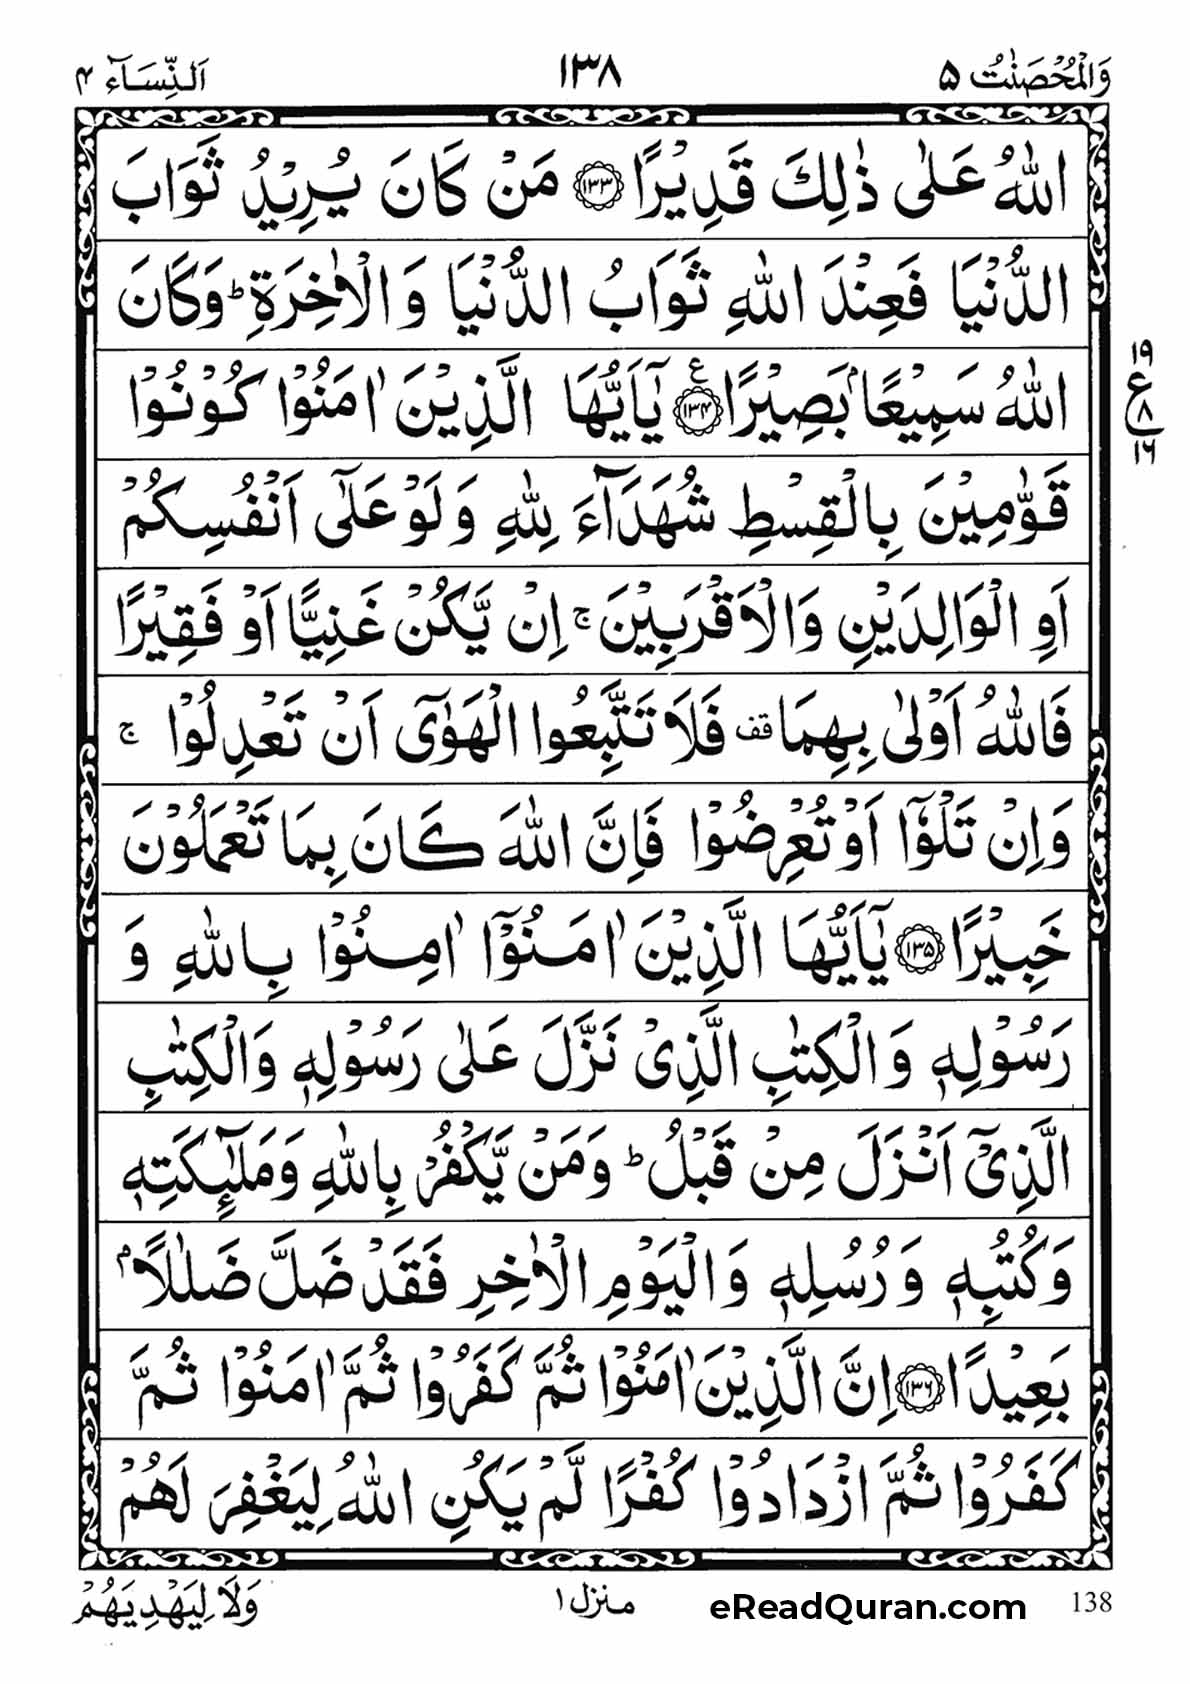 وَالْمُحْصَنٰتُ ۵
۱۳۸
اَلنِّسَآء ۴
اللّٰهُ عَلٰى ذٰلِكَ قَدِيْرًا ﴿۱۳۳﴾ مَنْ كَانَ يُرِيْدُ ثَوَابَ
الدُّنْيَا فَعِنْدَ اللّٰهِ ثَوَابُ الدُّنْيَا وَالْاٰخِرَةِ ؕ وَكَانَ
اللّٰهُ سَمِيْعًۢا بَصِيْرًا ﴿۱۳۴﴾ ع يٰۤاَيُّهَا الَّذِيْنَ اٰمَنُوْا كُوْنُوْا
۱۹
ع
۸
۱۶
قَوّٰمِيْنَ بِالْقِسْطِ شُهَدَآءَ لِلّٰهِ وَلَوْ عَلٰٓى اَنْفُسِكُمْ
اَوِ الْوَالِدَيْنِ وَالْاَقْرَبِيْنَ ۚ اِنْ يَّكُنْ غَنِيًّا اَوْ فَقِيْرًا
فَاللّٰهُ اَوْلٰى بِهِمَا قف فَلَا تَتَّبِعُوا الْهَوٰٓى اَنْ تَعْدِلُوْا ۚ
وَاِنْ تَلْوٗۤا اَوْ تُعْرِضُوْا فَاِنَّ اللّٰهَ كَانَ بِمَا تَعْمَلُوْنَ
خَبِيْرًا ﴿۱۳۵﴾ يٰۤاَيُّهَا الَّذِيْنَ اٰمَنُوْۤا اٰمِنُوْا بِاللّٰهِ وَ
رَسُوْلِهٖ وَالْكِتٰبِ الَّذِىْ نَزَّلَ عَلٰى رَسُوْلِهٖ وَالْكِتٰبِ
الَّذِىْۤ اَنْزَلَ مِنْ قَبْلُ ؕ وَمَنْ يَّكْفُرْ بِاللّٰهِ وَمَلٰٓئِكَتِهٖ
وَكُتُبِهٖ وَرُسُلِهٖ وَالْيَوْمِ الْاٰخِرِ فَقَدْ ضَلَّ ضَلٰلًاۢ
بَعِيْدًا ﴿۱۳۶﴾ اِنَّ الَّذِيْنَ اٰمَنُوْا ثُمَّ كَفَرُوْا ثُمَّ اٰمَنُوْا ثُمَّ
كَفَرُوْا ثُمَّ ازْدَادُوْا كُفْرًا لَّمْ يَكُنِ اللّٰهُ لِيَغْفِرَ لَهُمْ
138
eReadQuran.com
منزل ۱
وَلَا لِيَهْدِيَهُمْ